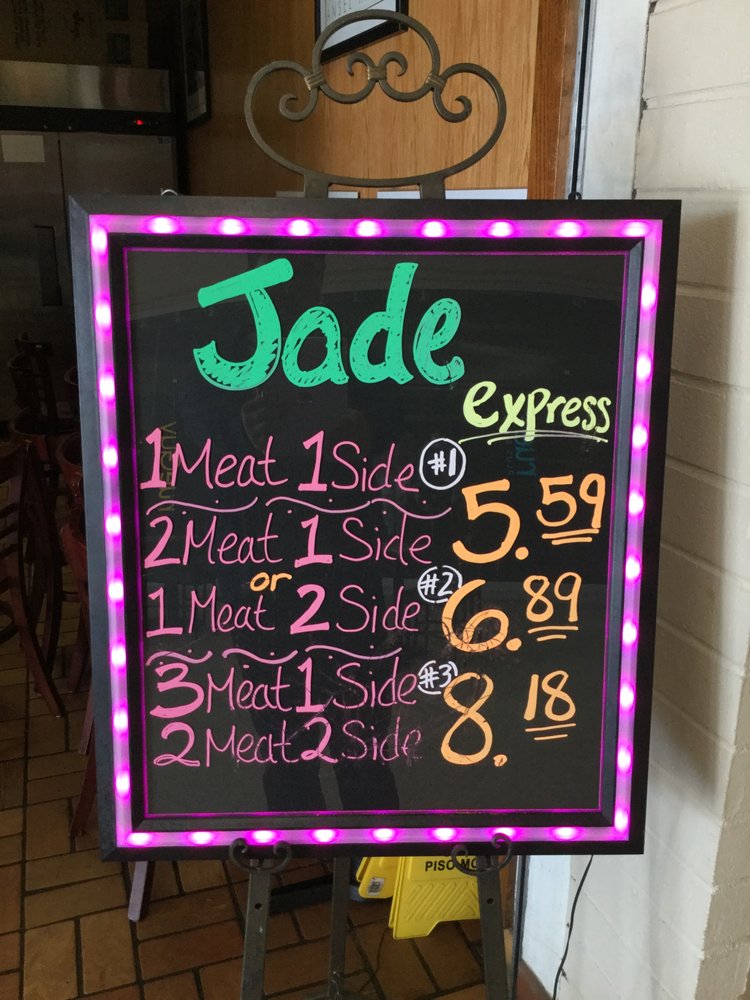 Jade
express
1 Meat 1 Side #1
5.59
2 Meat 1 Side
or
1 Meat 2 Side #2
6.89
3 Meat 1 Side #3
2 Meat 2 Side
8.18